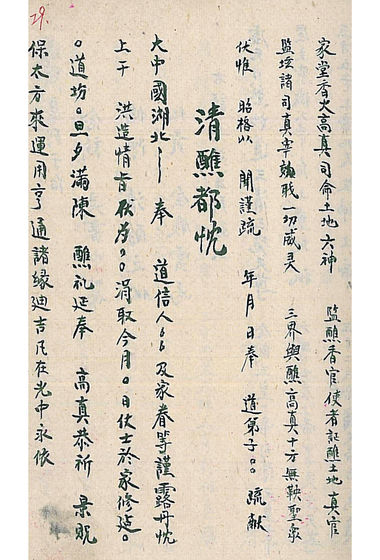 29.
家堂香火高真司命土地六神 監醮香官使者証醮土地真官
監坛諸司真宰 职一切威灵 三界與醮高真十方無鞅聖衆
伏惟 昭格以 聞謹疏 年月日奉 道弟子。。疏献
清醮都忱
大中國湖北 奉 道信人 及家眷等謹露丹忱
上干 洪造情旨伏为。。涓取今月。日仗士於家修建。
。道坊。旦夕满陳 醮礼延奉 高真恭祈 景貺
保太方來運用亨通諸緣迪吉凡在光中永依